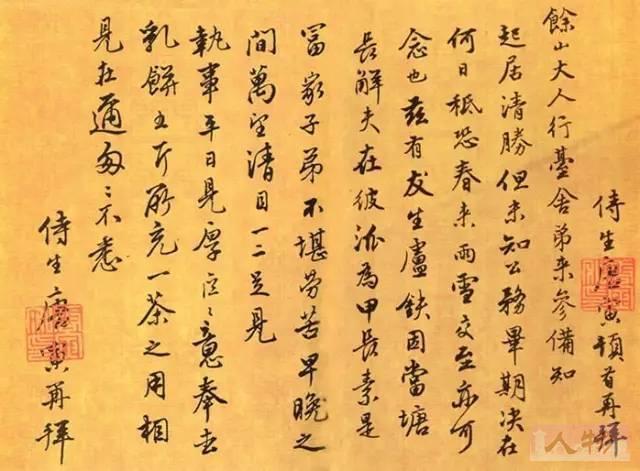 侍生唐寅頓首再拜
餘山大人行臺舍弟来參備知
起居清勝但未知公務畢期决在
何日秪恐春来雨雪交至亦可
念也兹有友生盧鈇因當塘
長解夫在彼泒為甲長素是
富家子弟不堪勞苦早晚之
間萬望清目一二足見
執事平日見厚區〻意奉去
乳餅五斤所充一茶之用相
見在邇匆〻不悉
侍生唐寅再拜